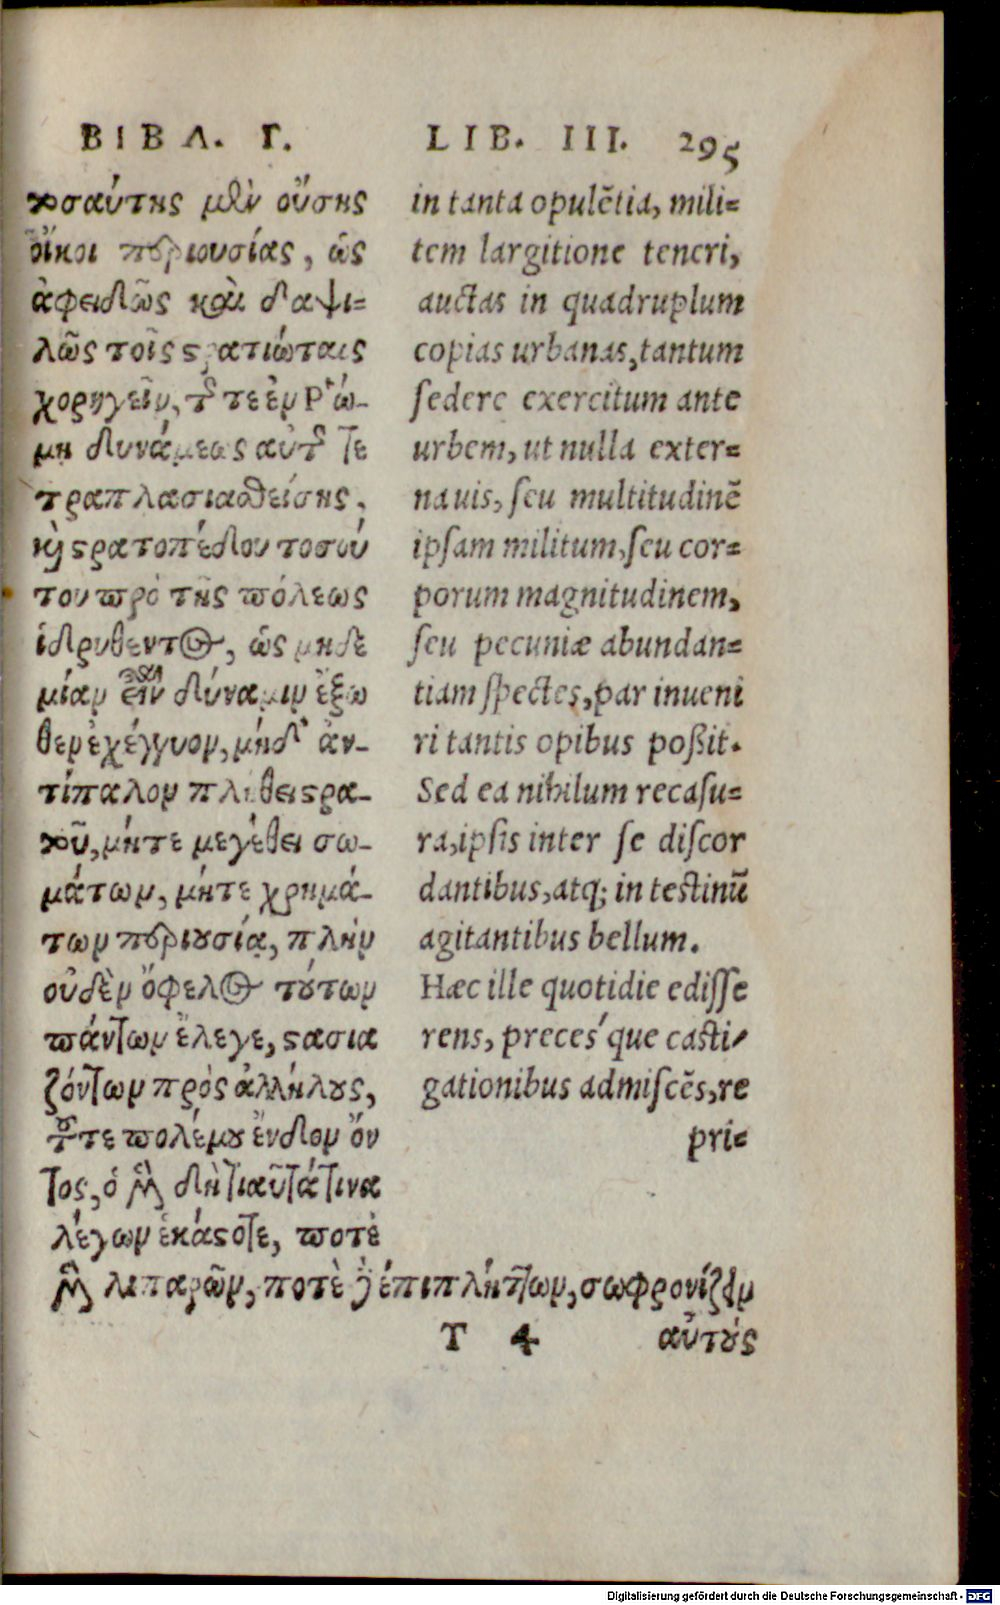 ΒΙΒΛ. Γ.
τοσαύτης μὲν οὔσης
οἴκοι περιουσίας, ὡς
ἀφειδῶς καὶ δαψι-
λῶς τοῖς στρατιώταις
χορηγεῖν, τῆς τε ἐν Ῥώ-
μῃ δυνάμεως αὐτῆς τε
τραπλασιασθείσης,
καὶ στρατοπέδου τοσού
του πρὸ τῆς πόλεως
ἱδρυθέντος, ὡς μηδε
μίαν εἶναι δύναμιν ἔξω
θεν ἐχέγγυον, μήδ' ἀν-
τίπαλον πλήθει στρα-
τοῦ, μήτε μεγέθει σω-
μάτων, μήτε χρημά-
των περιουσία, πλὴν
οὐδὲν ὄφελος τούτων
πάντων ἔλεγε, στασια
ζόντων πρὸς ἀλλήλους,
τοῦ τε πολέμου ἔνδον ὄν
τος, ὁ μὲν δὴ τιαῦτάτινα
λέγων ἑκάστοτε, ποτὲ
μὲν λιπαρῶν, ποτὲ δὲ ἐπιπλήττων, σωφρονίζειν
LIB. III. 295
in tanta opulẽtia, mili=
tem largitione teneri,
auctas in quadruplum
copias urbanas, tantum
ſedere exercitum ante
urbem, ut nulla exter=
na uis, ſeu multitudinẽ
ipſam militum, ſeu cor=
porum magnitudinem,
ſeu pecuniæ abundan=
tiam ſpectes, par inueni
ri tantis opibus poßit.
Sed ea nihilum recaſu=
ra, ipſis inter ſe diſcor
dantibus, atq; in teſtinũ
agitantibus bellum.
Hæc ille quotidie ediſſe
rens, preceśque caſti/
gationibus admiſcẽs, re
pri=
T 4 αὐτούς
Digitalisierung gefördert durch die Deutsche Forschungsgemeinschaft - DFG